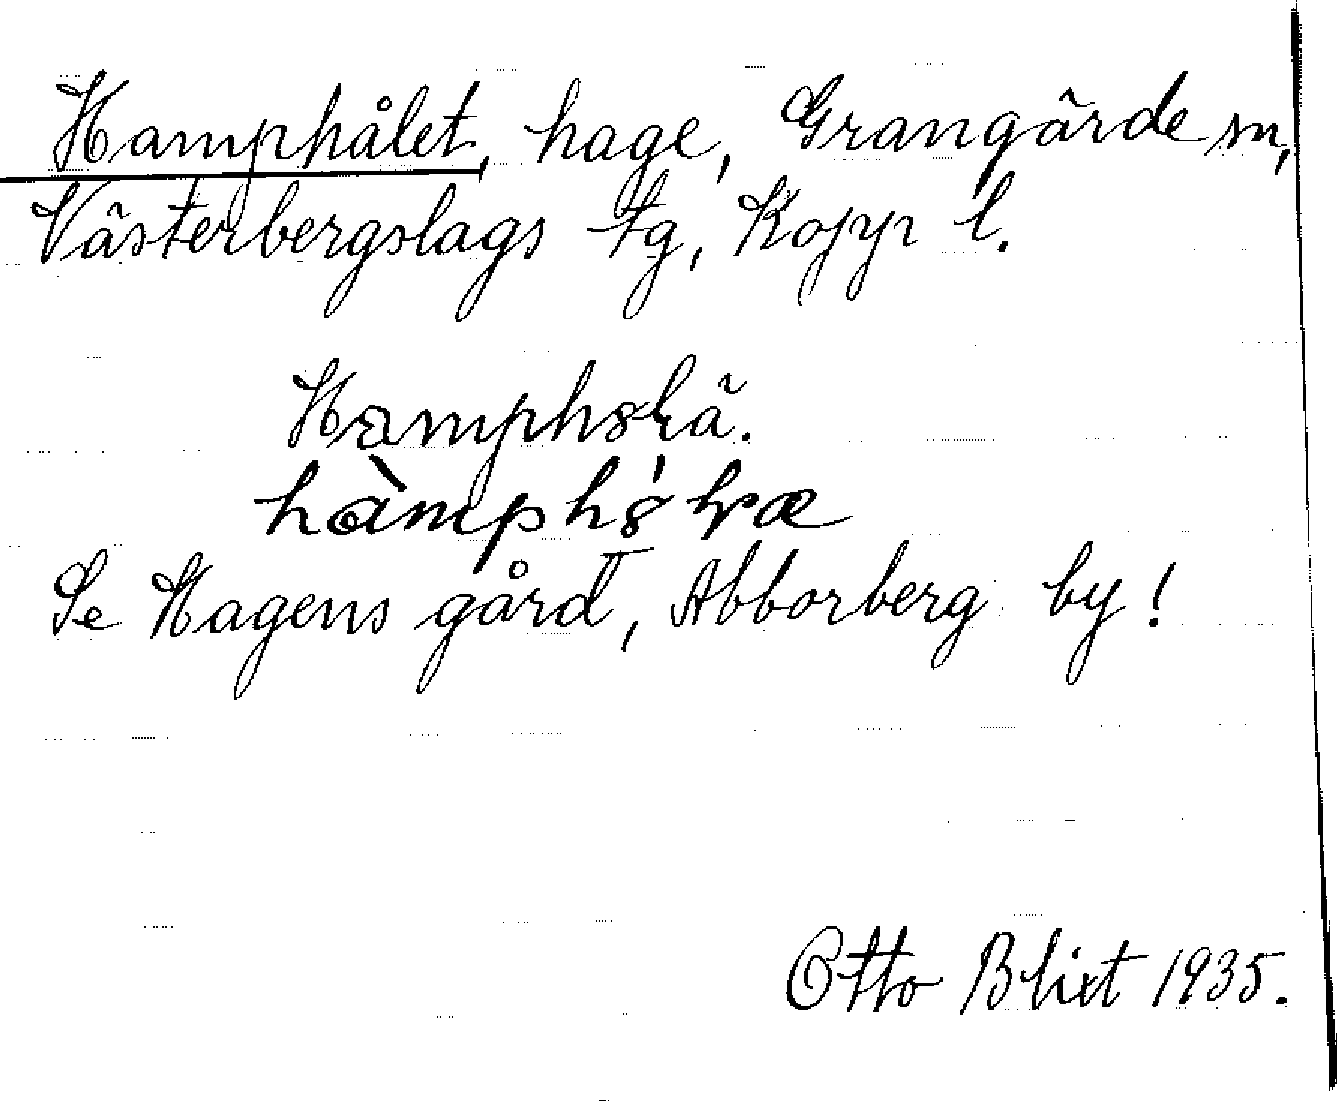 Hamphålet, hage, Grangärde sn,
Västerbergslags tg, Kopp l.
Se Hagens gård, Abborberg by!
Otto Blixt 1935.